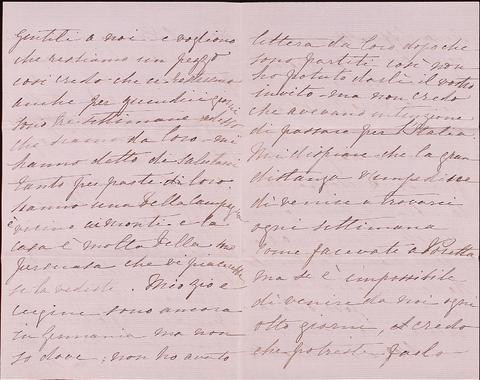 gentili a noi e vogliono
che restiamo un pezzo
così credo che ci resteremo
anche per quindici giorni
sono tre settimane adesso
che siamo da loro mi
hanno detto di salutarvi
tanto per parte di loro.
hanno una bella campagna
è vicino ai monti e la
casa è molto bella ma
che vi piacerebbe
se la vedeste. Mio zio e
cugine sono ancora
in Germania ma non
so dove; non ho avuto
lettera da loro dopo che
sono partiti così non
ho potuto darli il vostro
invito ma non credo
che avevano intenzione
di passare per l'Italia.
Mi dispiace che la gran
distanza v'impedisce
di venire a trovarci
ogni settimana
come facevate a Poretta
ma se è impossibile
di venire da noi ogni
otto giorni, credo
che potreste farlo